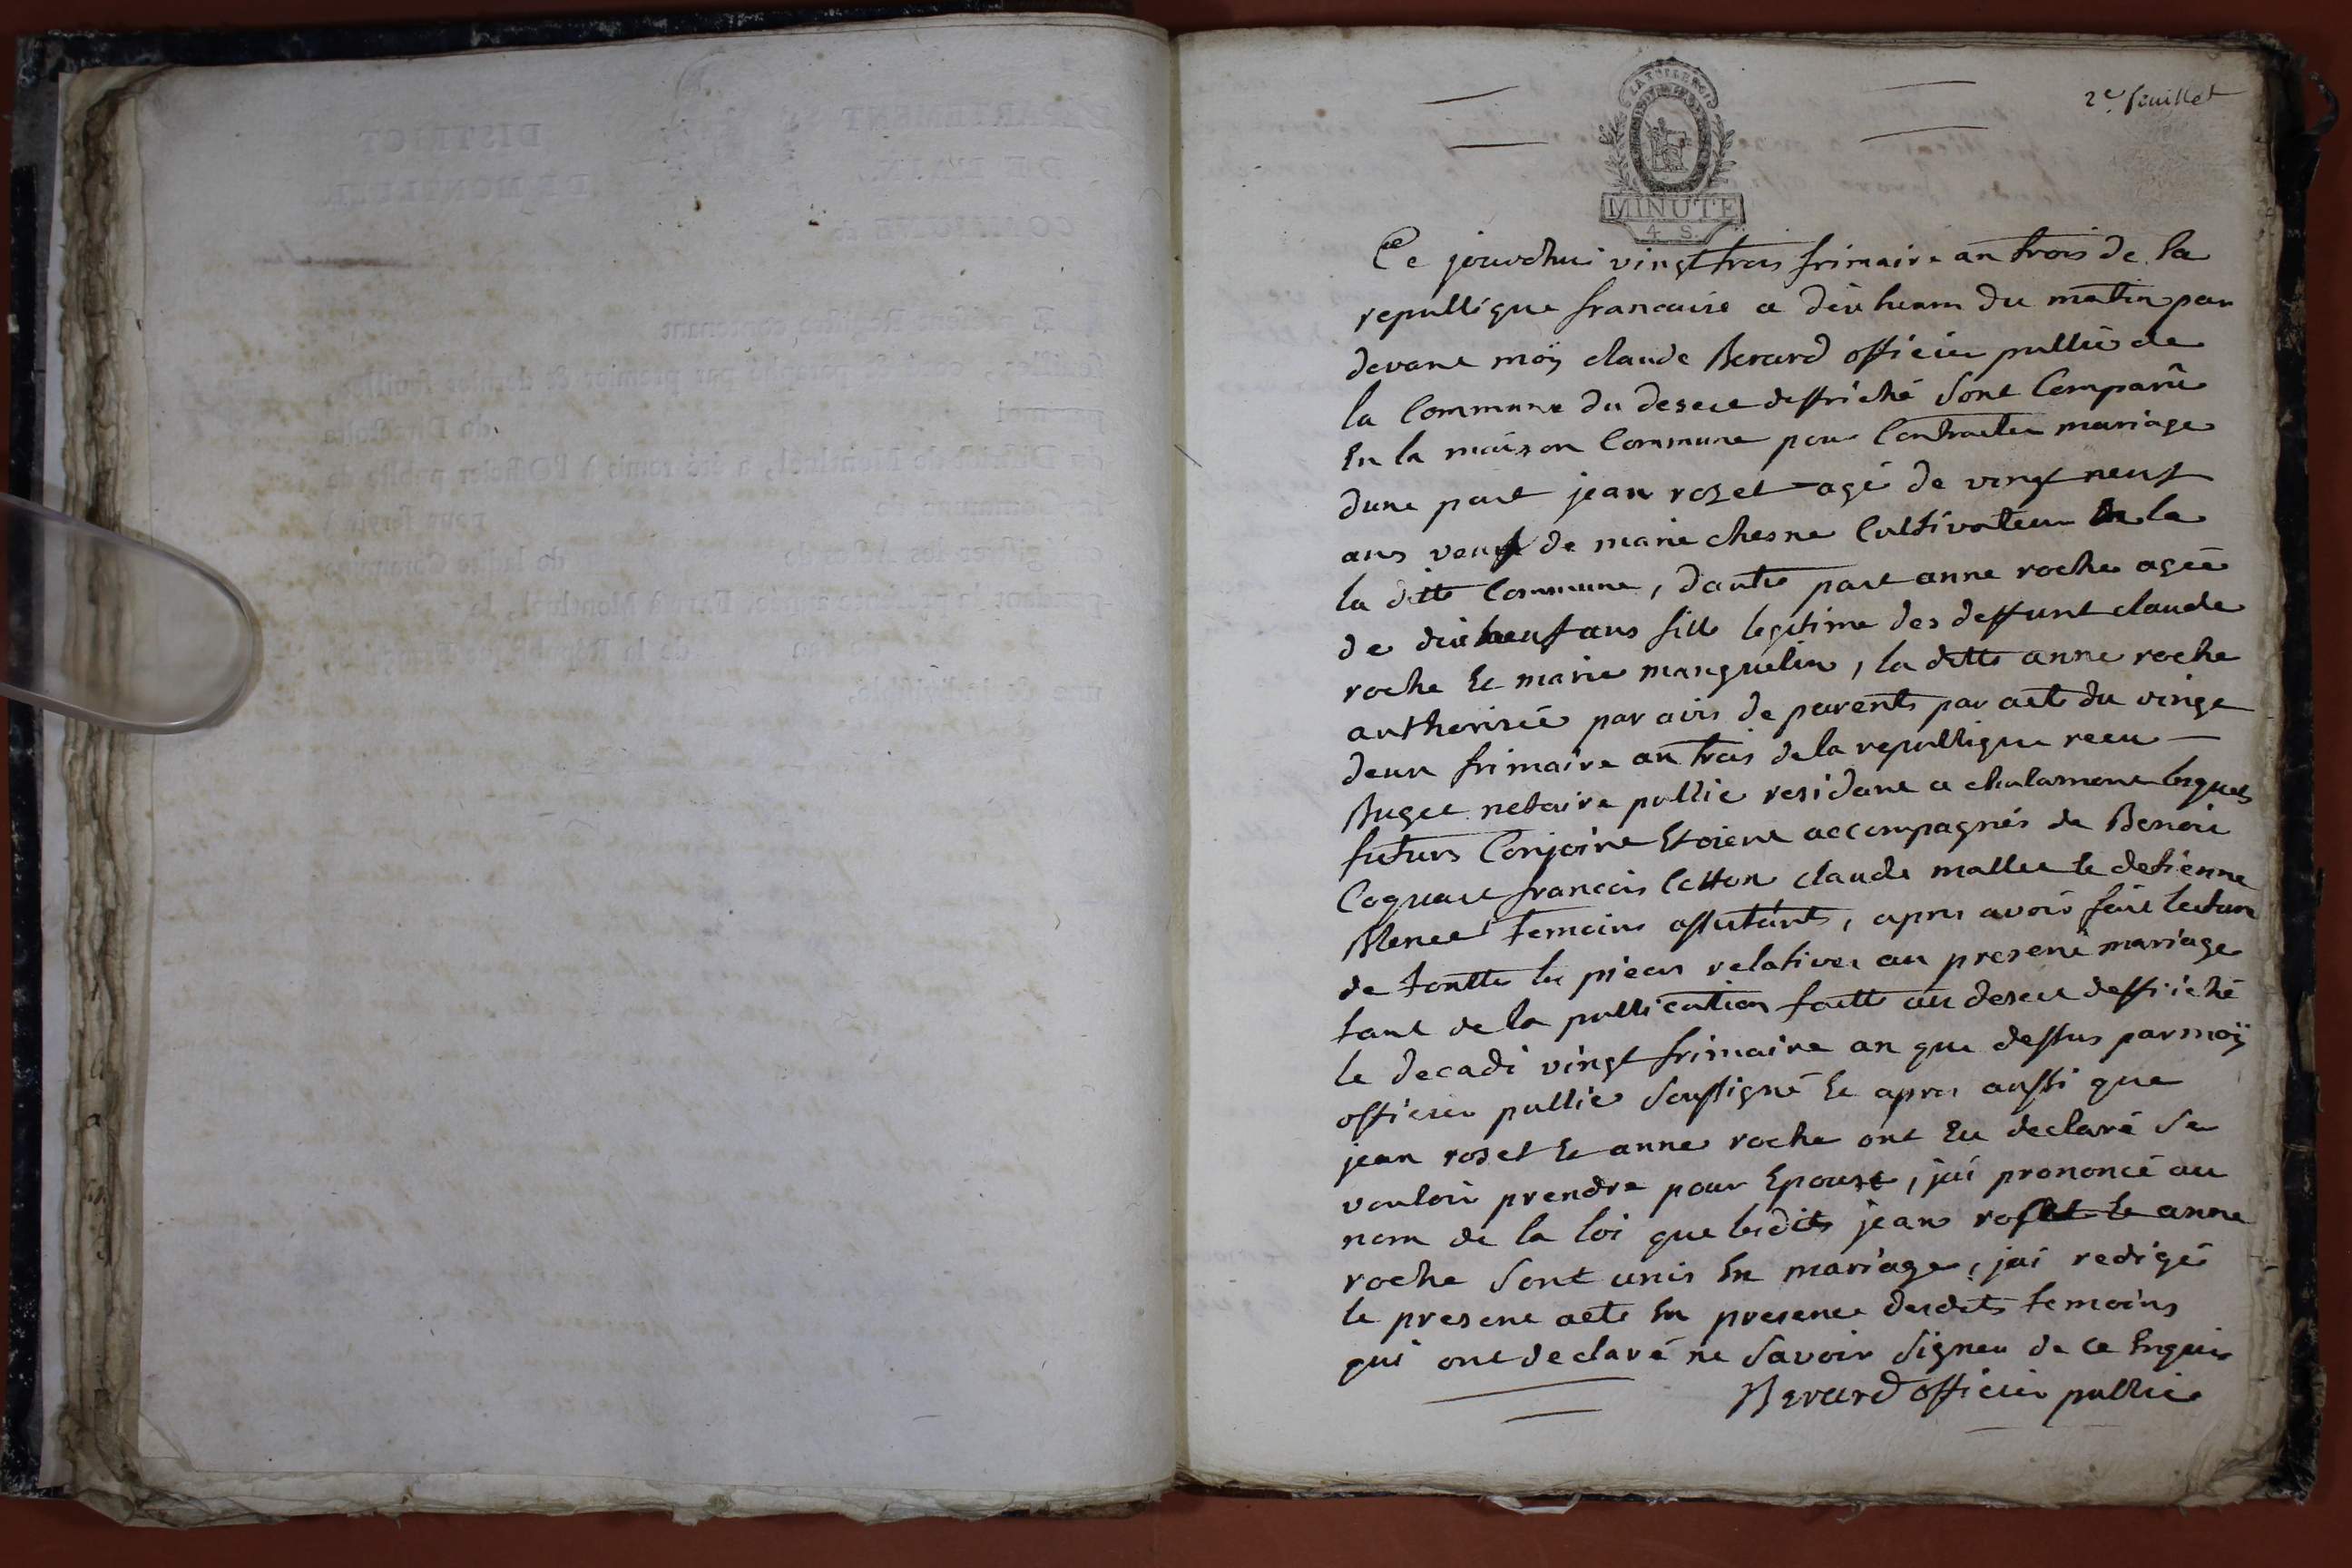 2e feuillet
MINUTE
4. S.
Ce jourdhui vingt trois frimaire an trois de la
republique francaise a dix heures du matin par
devant moÿ claude Berard officier public de
la Commune du desert deffriché sont Comparû
En la maison Commune pour Contracter mariage
dune part jean rozet agé de vingt neuf
ans veuf de marie chesne Cultivateur de la
la ditte Commune, dautre part anne roche agée
de dix neuf ans fille legitime des deffunt claude
roche Et marie manguelin, la ditte anne roche
authorisée par avis de parents par acte du vingt
deux frimaire an trois de la republique recu
Buget notaire public residant a chalamont lesquels
futurs Conjoint Etoient accompagnés de Benoit
Coquart francois Cotton claude mallet Et detienne
Blence temoins assistants, apres avoir fait lecture
de toutte les pieces relatives au present mariage
tant de la publication faitte au desert deffriché
le decadi vingt frimaire an que dessus par moÿ
officier public soussigné Et apres aussi que
jean roset Et anne roche ont Eu declaré se
vouloir prendre pour Epouse, jai prononcé au
nom de la loi que lesdits jean roset Et anne
roche sont unis En mariage, jai redigé
le present acte En presence desdits temoins
qui ont declaré ne savoir signer de ce Enquis
Berard officier public
DEPARTEMENT
DISTRICT
DE L'AIN.
DE MONTLUEL